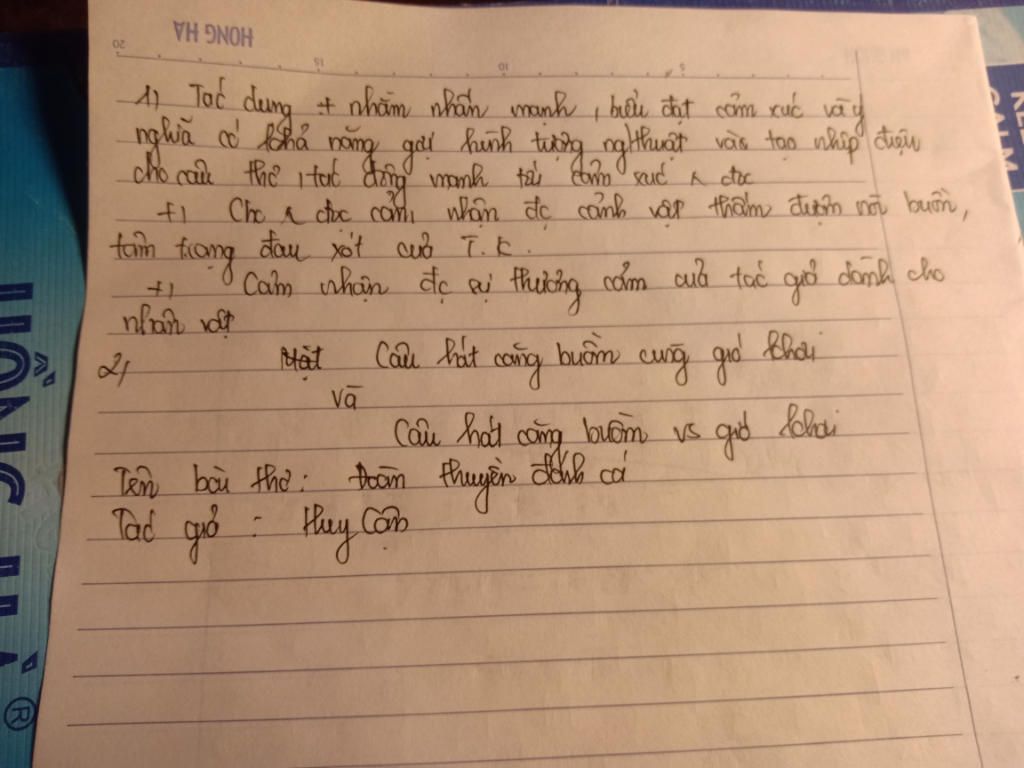 HONG HA
20 15 10 5
1) Tác dụng + nhằm nhấn mạnh, biểu đạt cảm xúc và ý
nghĩa có khả năng gợi hình tượng nghthuật và tạo nhịp điệu
cho câu thơ, tác động mạnh tới cảm xúc ng đọc
+) Cho ng đọc cảm nhận đc cảnh vật thấm đượm nỗi buồn,
tâm trạng đau xót của T.K.
+) Cảm nhận đc sự thương cảm của tác giả dành cho
nhân vật
2) Mặt Câu hát căng buồm cùng gió khơi
và
Câu hát căng buồm vs gió khơi
Tên bài thơ: Đoàn thuyền đánh cá
Tác giả : Huy Cận
HỒNG HÀ ®